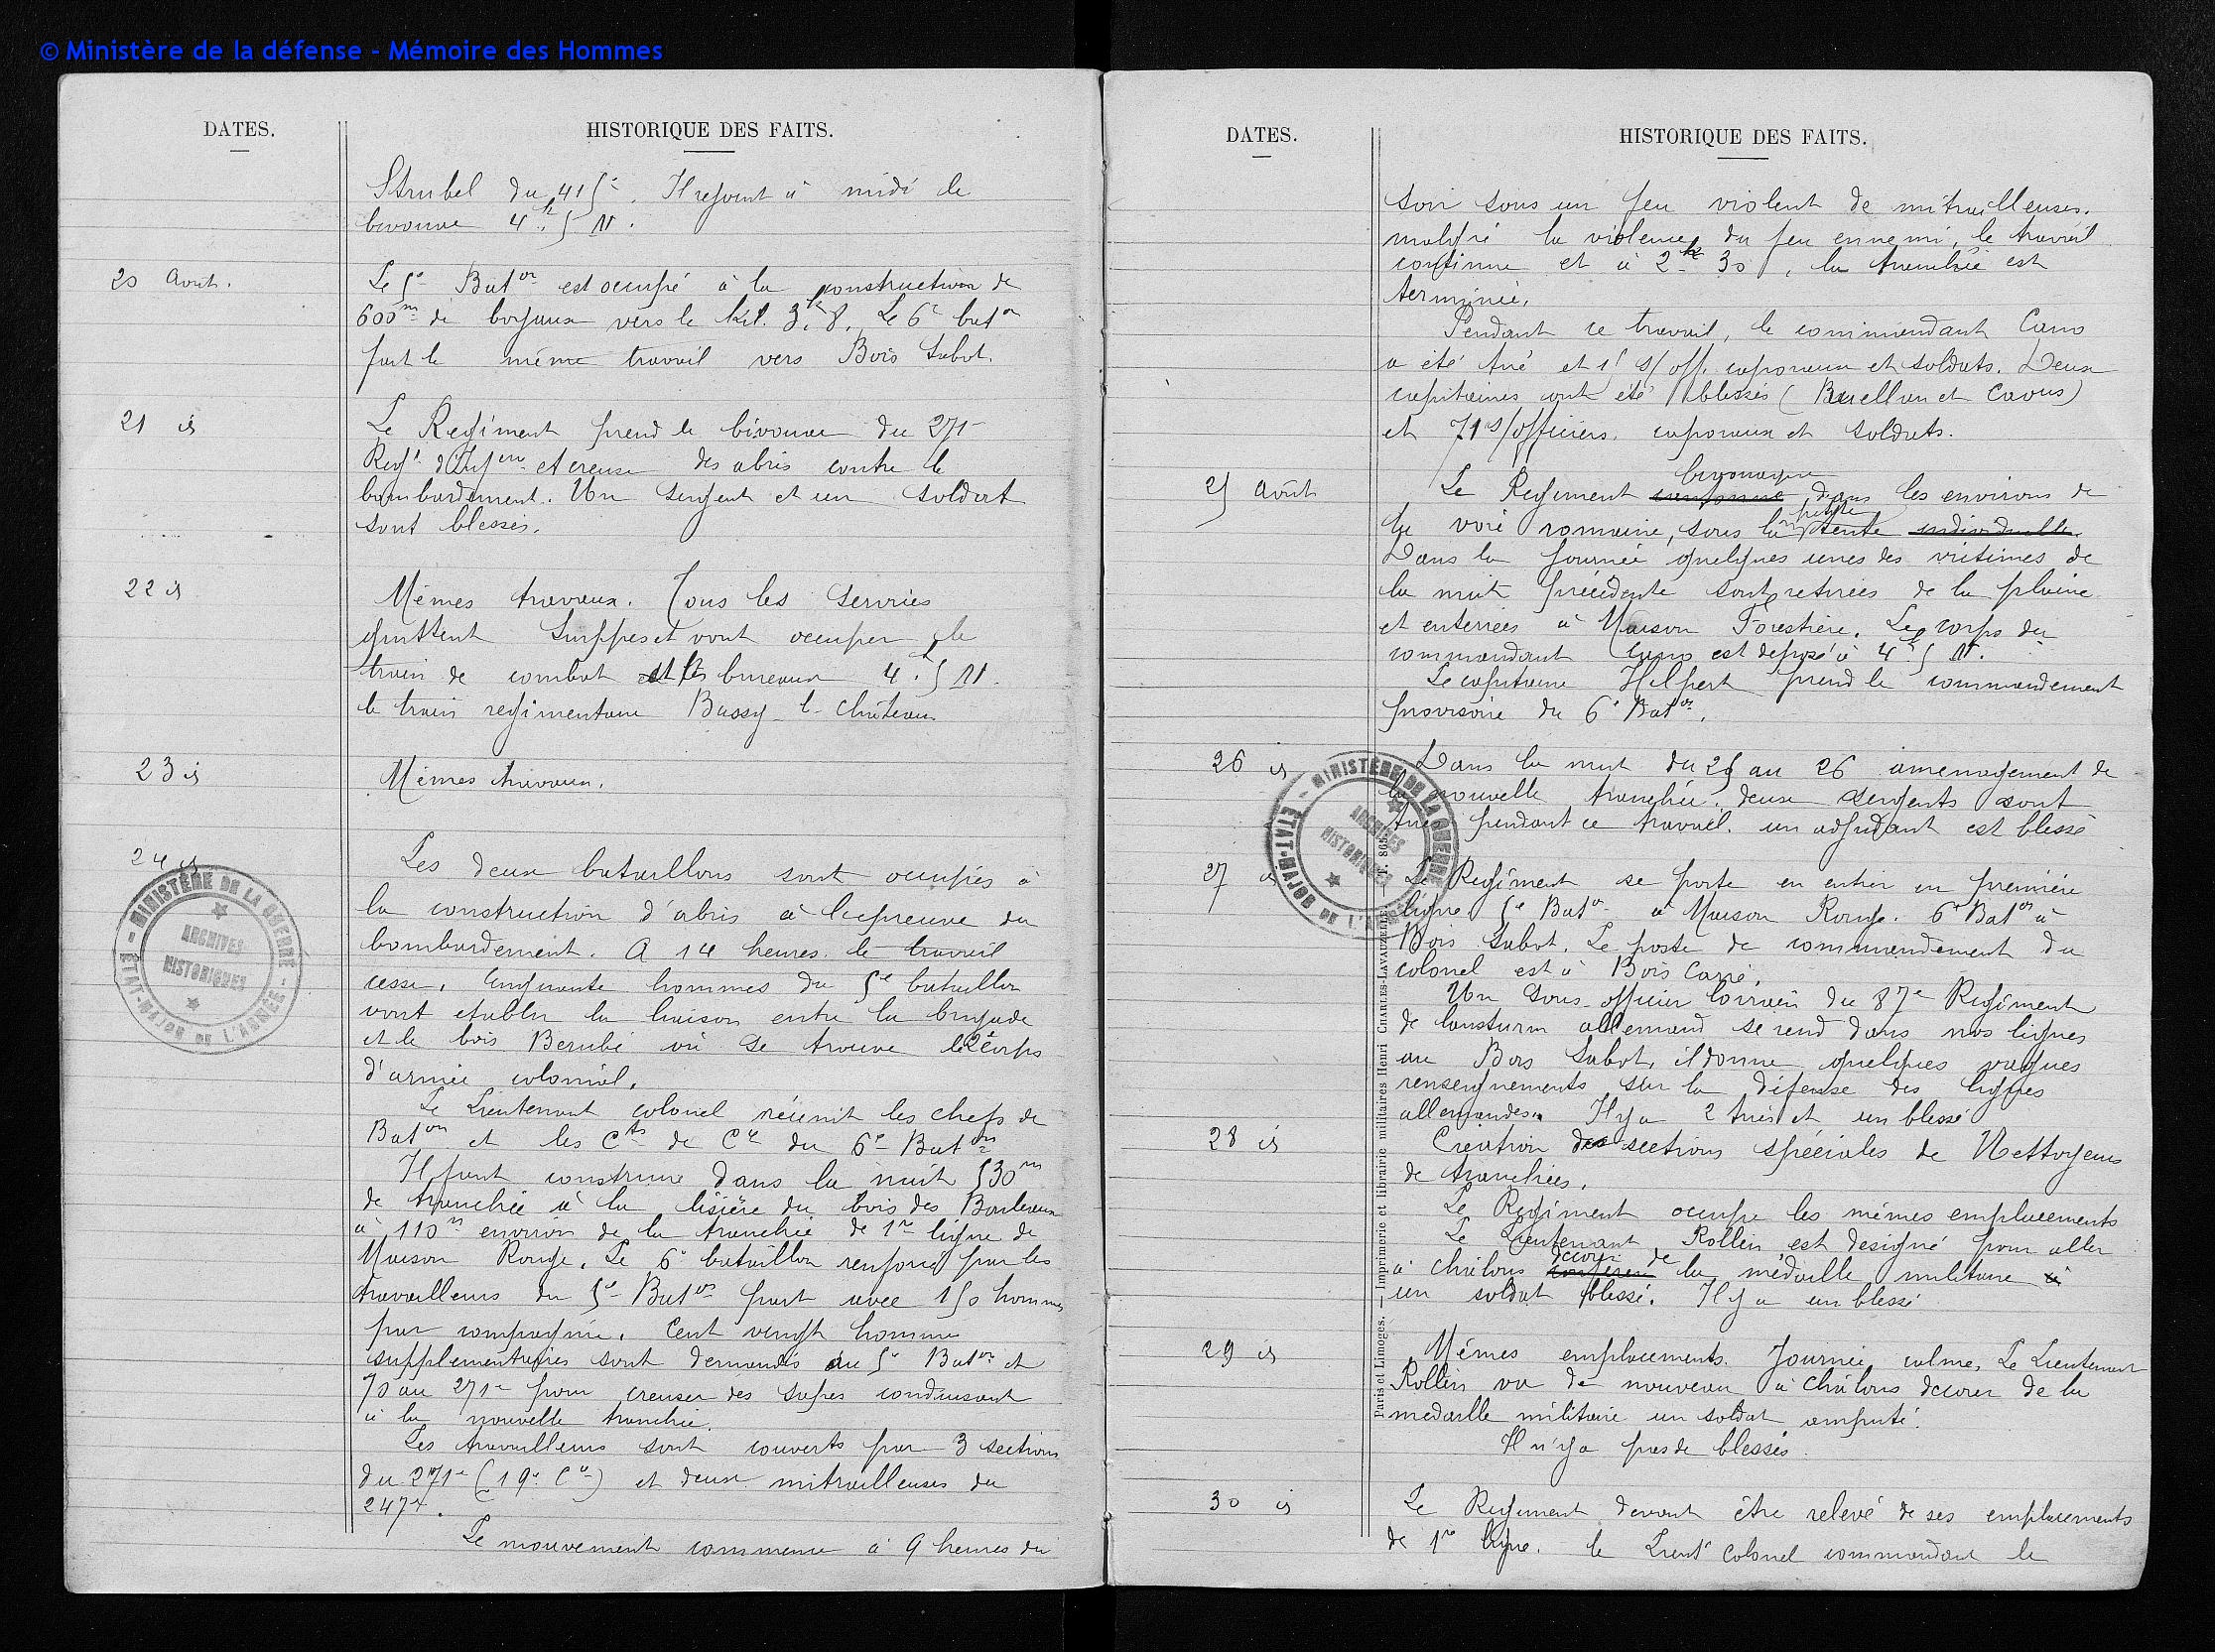 © Ministère de la défense - Mémoire des Hommes
DATES.
HISTORIQUE DES FAITS.
Strubel du 415e. Il rejoint à midi le
bivouac 4h,5 N.
20 Août.
Le 5e Baton est occupé à la construction de
600m de boyaux vers le kil. 3k,8. Le 6e baton
fait le même travail vers Bois Sabot.
21 is
Le Régiment prend le bivouac du 271e
Regt d'Infrie et creuse des abris contre le
bombardement. Un sergent et un soldat
sont blessés.
22 is
Mêmes travaux. Tous les services
quittent Suippes et vont occuper le
train de combat et les bureaux 4k,5 N.
le train regimentaire Bussy-le-Château
23 is
Mêmes travaux.
24 is
Les deux bataillons sont occupés à
la construction d'abris à l'epreuve du
bombardement. A 14 heures le travail
cesse. Cinquante hommes du 5e bataillon
vont etablir la liaison entre la brigade
et le bois où se trouve le 2e corps
d'armée colonial.
Le Lieutenant colonel réunit les chefs de
Baton et les Cts de Cie du 6e Baton
Il faut construire dans la nuit 530m
de tranchée à la lisière du bois des Bouleaux
à 110m environ de la tranchée de 1re ligne de
Maison Rouge. Le 6e bataillon renforcé par les
travailleurs du 5e Baton part avec 150 hommes
par compagnie. Cent vingt hommes
supplementaires sont demandés au 5e Baton et
70 au 271e pour creuser des sapes conduisant
à la nouvelle tranchée.
Les travailleurs sont couverts par 3 sections
du 271e (19e Cie) et deux mitrailleuses du
247e.
Le mouvement commence à 9 heures du
MINISTÈRE DE LA GUERRE
ÉTAT-MAJOR DE L'ARMÉE
ARCHIVES
HISTORIQUES
DATES.
HISTORIQUE DES FAITS.
soir sous un feu violent de mitrailleuses.
malgré la violence du feu ennemi, le travail
continue et à 2h 30, la tranchée est
terminée.
Pendant ce travail, le commandant Cano
a été tué et 15 s/off. caporaux et soldats. Deux
capitaines ont été blessés ( et )
et 71 s/officiers, caporaux et soldats.
25 Août
bivouaque
Le Regiment cantonne dans les environs de
petite
la voie romaine, sous la tente individuelle.
Dans la journée quelques unes des victimes de
la nuit précédente sont retirées de la plaine
et enterrées à Maison Forestière. Le corps du
commandant Cano est déposé à 4k,5 N.
Le capitaine Hilpert prend le commandement
provisoire du 6e Baton.
26 is
Dans la nuit du 25 au 26 aménagement de
la nouvelle tranchée. deux sergents sont
tués pendant ce travail. un adjudant est blessé
27 is
Le Régiment se porte en entier en première
ligne. 5e Baton à Maison Rouge. 6e Baton à
Bois Sabot. Le poste de commandement du
colonel est à Bois Carré.
Un sous-officier lorrain du 87e Régiment
de lansturm allemand se rend dans nos lignes
au Bois Sabot, il donne quelques vagues
renseignements sur la défense des lignes
allemandes. Il y a 2 tués et un blessé
28 is
Création des sections spéciales de Nettoyeurs
de tranchées.
Le Régiment occupe les mêmes emplacements
Le Lieutenant Rollin est designé pour aller
décorer de
à Châlons conférer la médaille militaire à
un soldat blessé. Il y a un blessé
29 is
Mêmes emplacements. Journée calme. Le Lieutenant
Rollin va de nouveau à Châlons décorer de la
medaille militaire un soldat amputé.
Il n'y a pas de blessés.
30 is
Le Regiment devant être relevé de ses emplacements
de 1re ligne. le Lieut Colonel commandant le
MINISTÈRE DE LA GUERRE
ÉTAT-MAJOR DE L'ARMÉE
ARCHIVES
HISTORIQUES
Paris et Limoges. — Imprimerie et librairie militaires Henri CHARLES-LAVAUZELLE